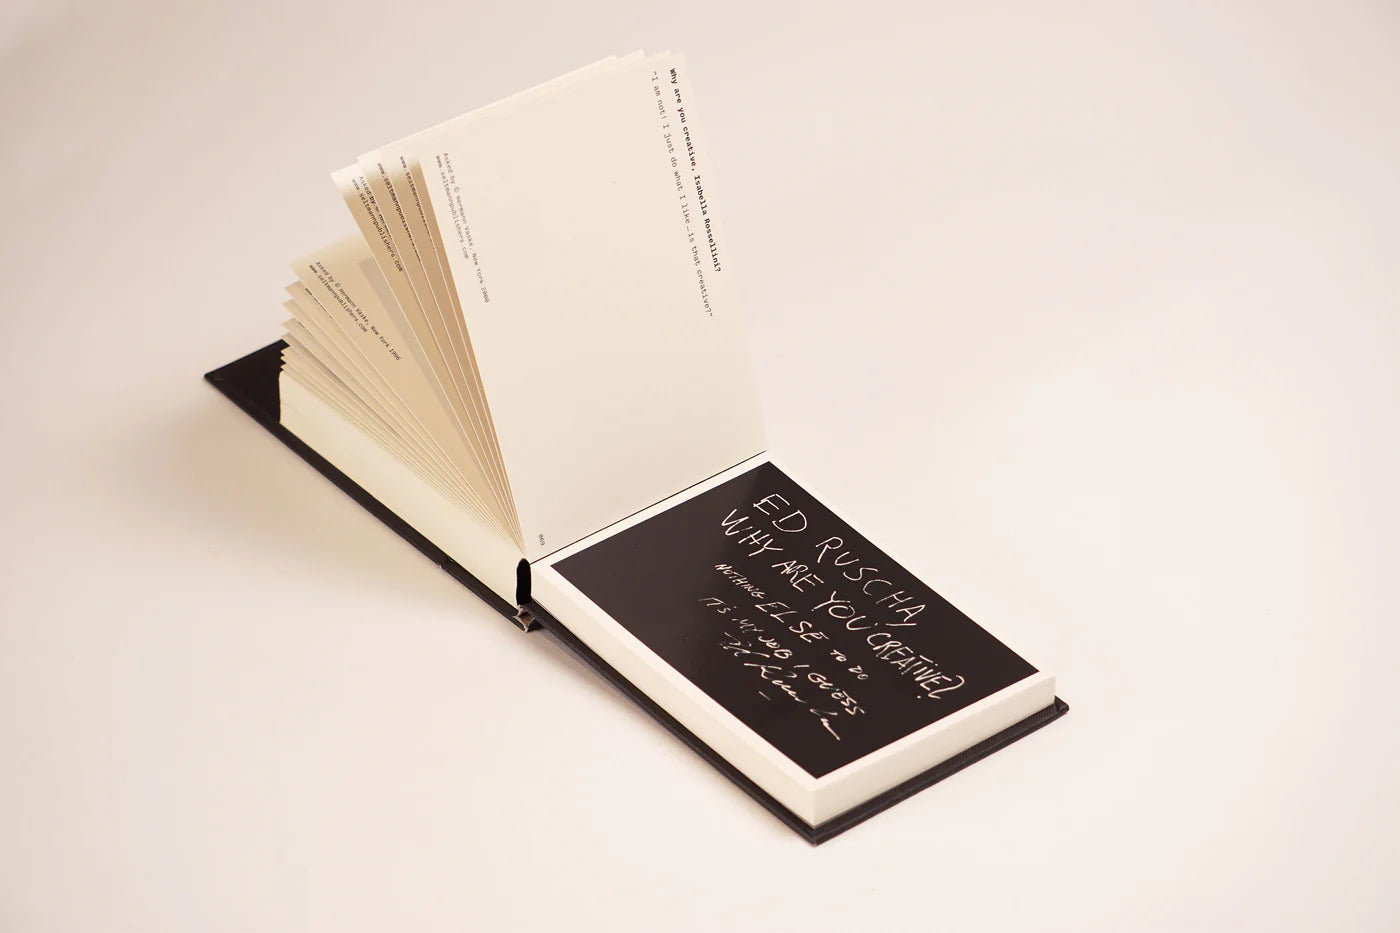 Why are you creative, Isabella Rossellini?
"I am not! I just do what I like – is that creative?"
Asked by © Hermann Vaske, New York 2000
www.seltmannpublishers.com
069
www.seltmannpubl
Asked by
www.seltmannpublishers.com
Asked by © Hermann Vaske, New York 1996
www.seltmannpublishers.com
ED RUSCHA,
WHY ARE YOU CREATIVE?
NOTHING ELSE TO DO
IT'S MY JOB I GUESS
Ed Ruscha